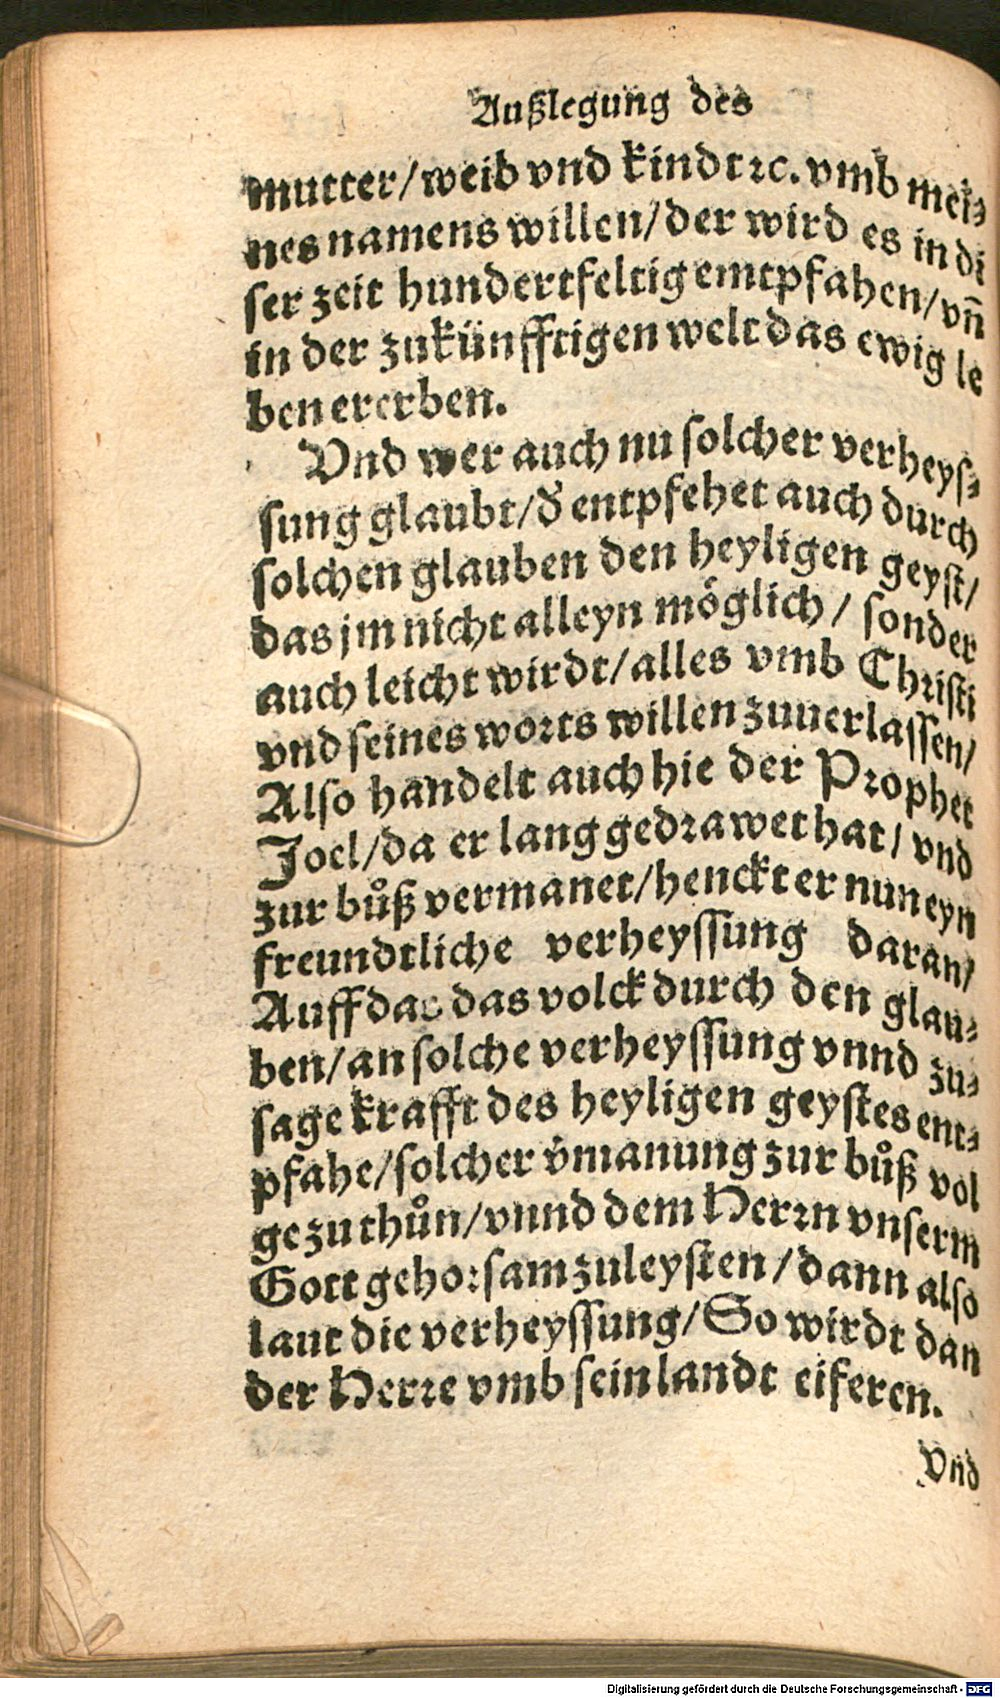 Außlegung des
mutter/weib vnd kindt ꝛc. vmb mei⸗
nes namens willen/der wird es in di
ser zeit hundertfeltig emtpfahen/vñ
in der zukünfftigen welt das ewig le
ben ererben.
Vnd wer auch nu solcher verheys⸗
sung glaubt/d̃ entpfehet auch durch
solchen glauben den heyligen geyst/
das jm nicht alleyn möglich/ sonder
auch leicht wirdt/alles vmb Christi
vnd seines worts willen zuuerlassen/
Also handelt auch hie der Prophet
Joel/da er lang gedrawet hat/ vnd
zur bůß vermanet/henckt er nun eyn
freundtliche verheyssung daran/
Auff das das volck durch den glau⸗
ben/an solche verheyssung vnnd zu⸗
sage krafft des heyligen geystes ent⸗
pfahe/solcher v̈manung zur bůß vol
ge zu thůn/vnnd dem Herrn vnserm
Gott gehorsam zuleysten/dann also
laut die verheyssung/So wirdt dan
der Herre vmb sein landt eiferen.
Vnd
Digitalisierung gefördert durch die Deutsche Forschungsgemeinschaft - DFG